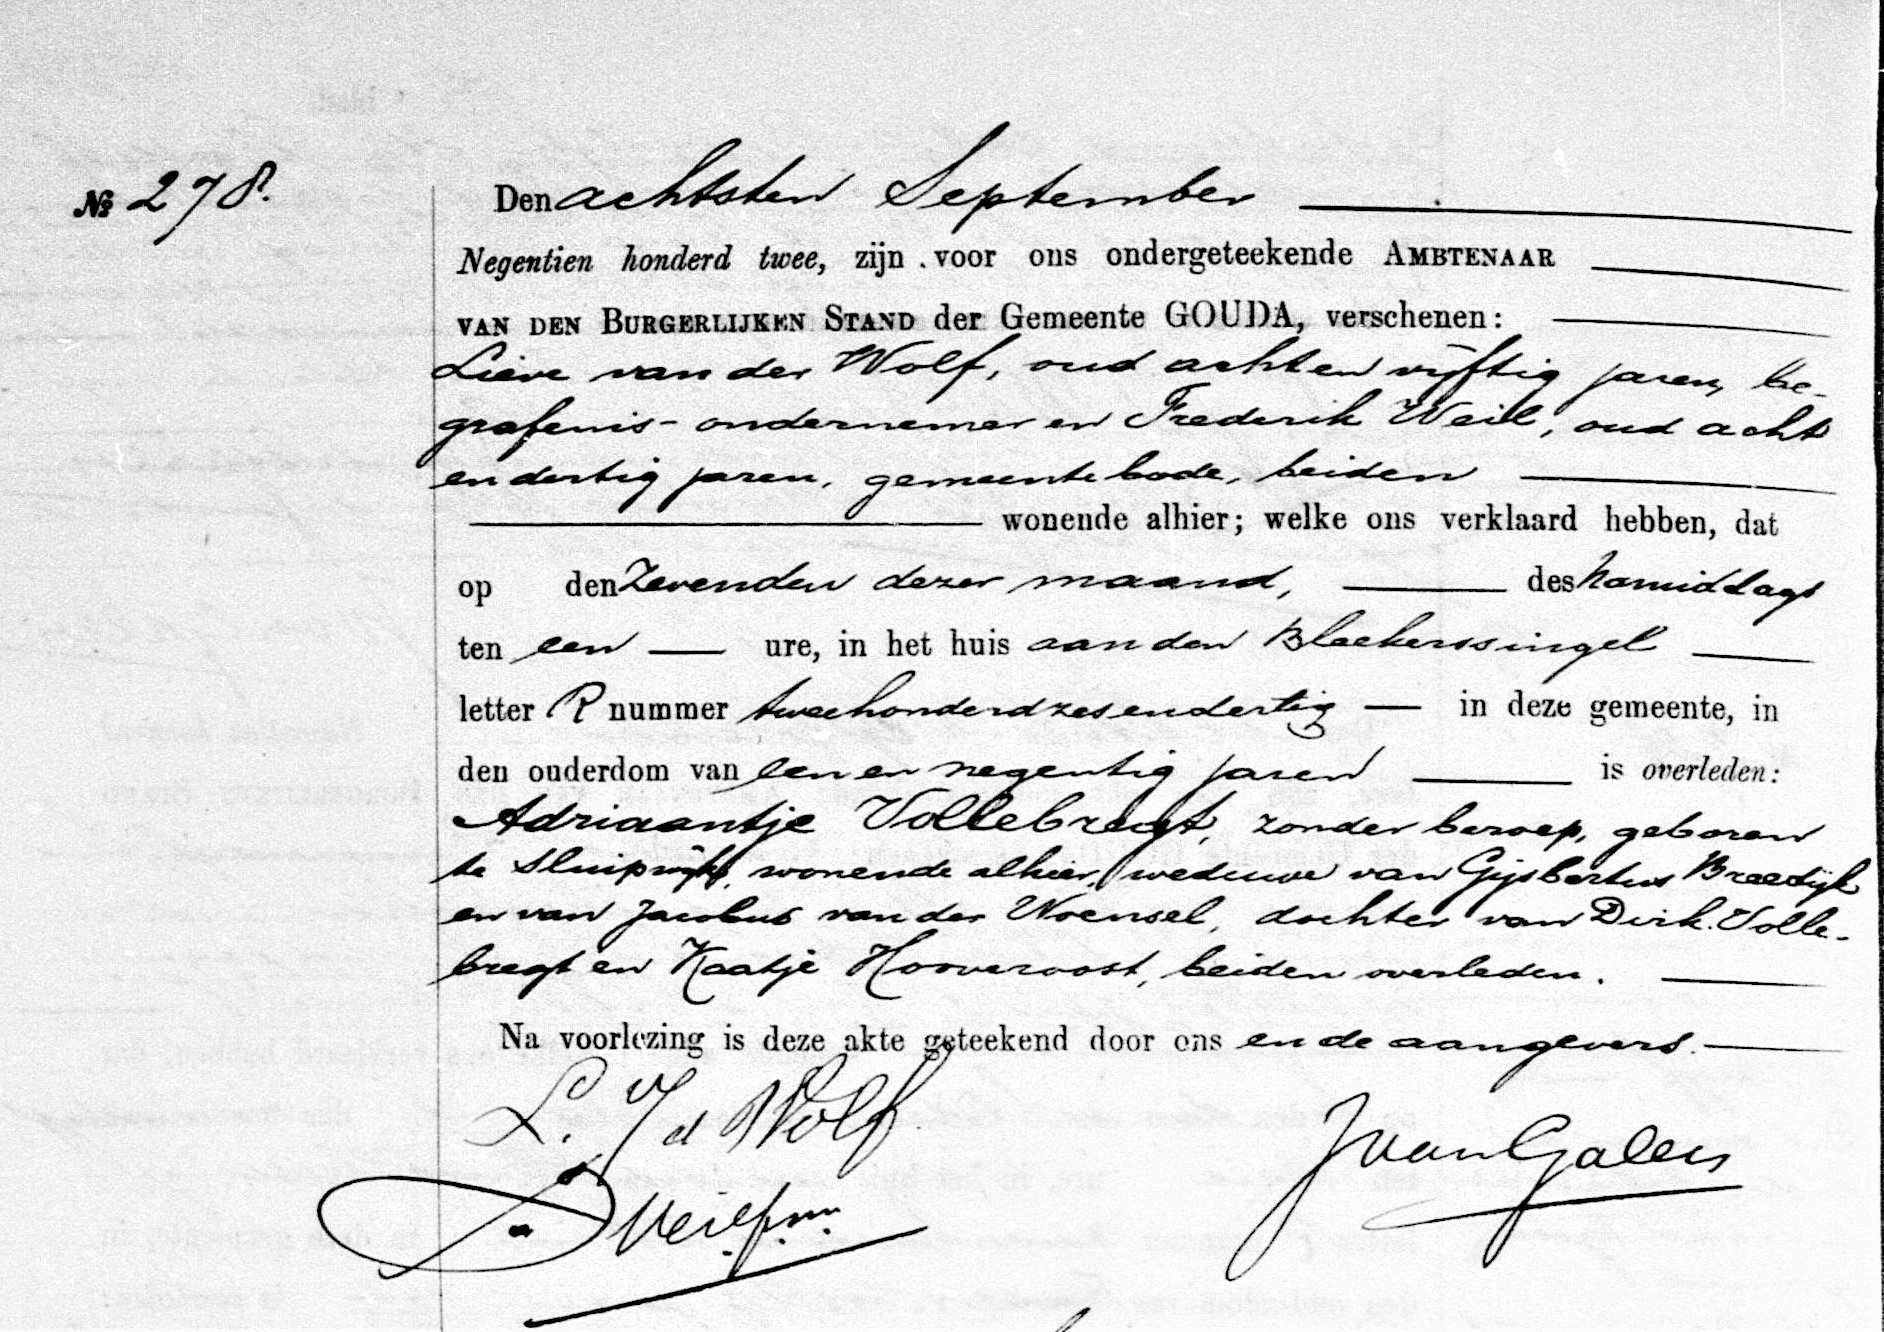 № 278.
Den achtsten September
Negentien honderd twee, zijn voor ons ondergeteekende AMBTENAAR
VAN DEN BURGERLIJKEN STAND der Gemeente GOUDA, verschenen:
Lieve van der Wolf, oud acht en vijftig jaren, be-
grafenis-ondernemer en Frederik Weil, oud acht
en dertig jaren, gemeentebode, beiden
wonende alhier; welke ons verklaard hebben, dat
op den Zevenden dezer maand, des Namiddags
ten een ure, in het huis aan den Bleekerssingel
letter R nummer tweehonderdzesendertig in deze gemeente, in
den ouderdom van een en negentig jaren is overleden:
Adriaantje Vollebregt, zonder beroep, geboren
te Sluipwijk, wonende alhier, weduwe van Gijsbertus Breedijk
en van Jacobus van der Woensel, dochter van Dirk Volle-
bregt en Kaatje Hooveroost, beiden overleden.
Na voorlezing is deze akte geteekend door ons en de aangevers.
L. v d Wolf
J van Galen
Weil